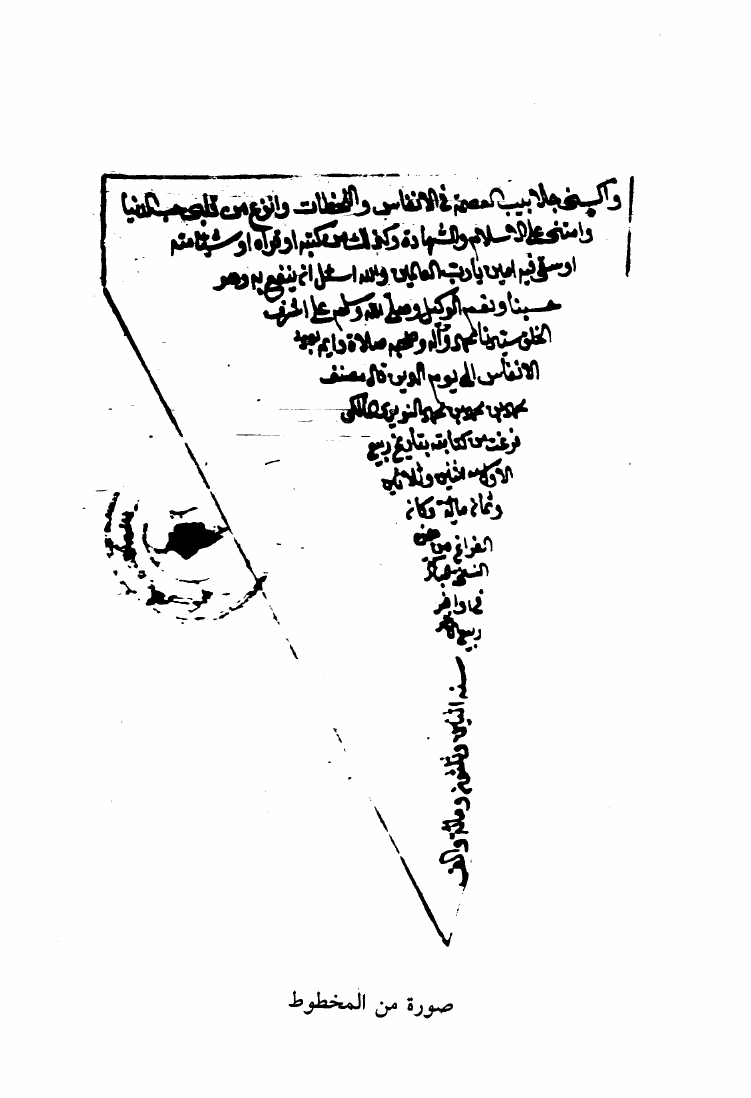 واكسني جلابيب العصمة في الانفاس واللحظات وانزع من قلبي حب الدنيا
وامتني على الاسلام والشهادة وكذلك من كتبه او قراه او شيئا منه
او سعى فيه امين يارب العالمين والله اسئل ان ينفع به وهو
حسبنا ونعم الوكيل وصلى الله وسلم على اشرف
الخلق سيدنا محمد وآله وصحبه صلاة دايمه بعدد
الانفاس الى يوم الدين قال مصنفه
محمد بن محمد بن محمد النويري المالكي
فرغت من كتابته بتاريخ ربيع
الاول سنة اثنين وثلاثين
وثمان مائة وكان
الفراغ من هذه
النسخة
في اواخر
ربيع
سنة اثنين وثلثين ومائة والف
صورة من المخطوط